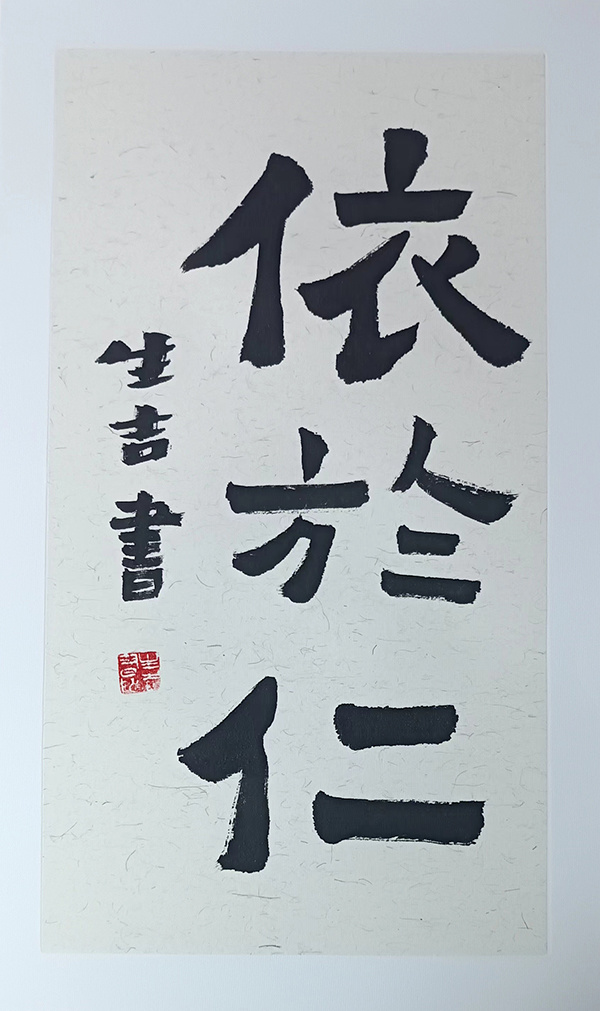 依於仁
生吉書